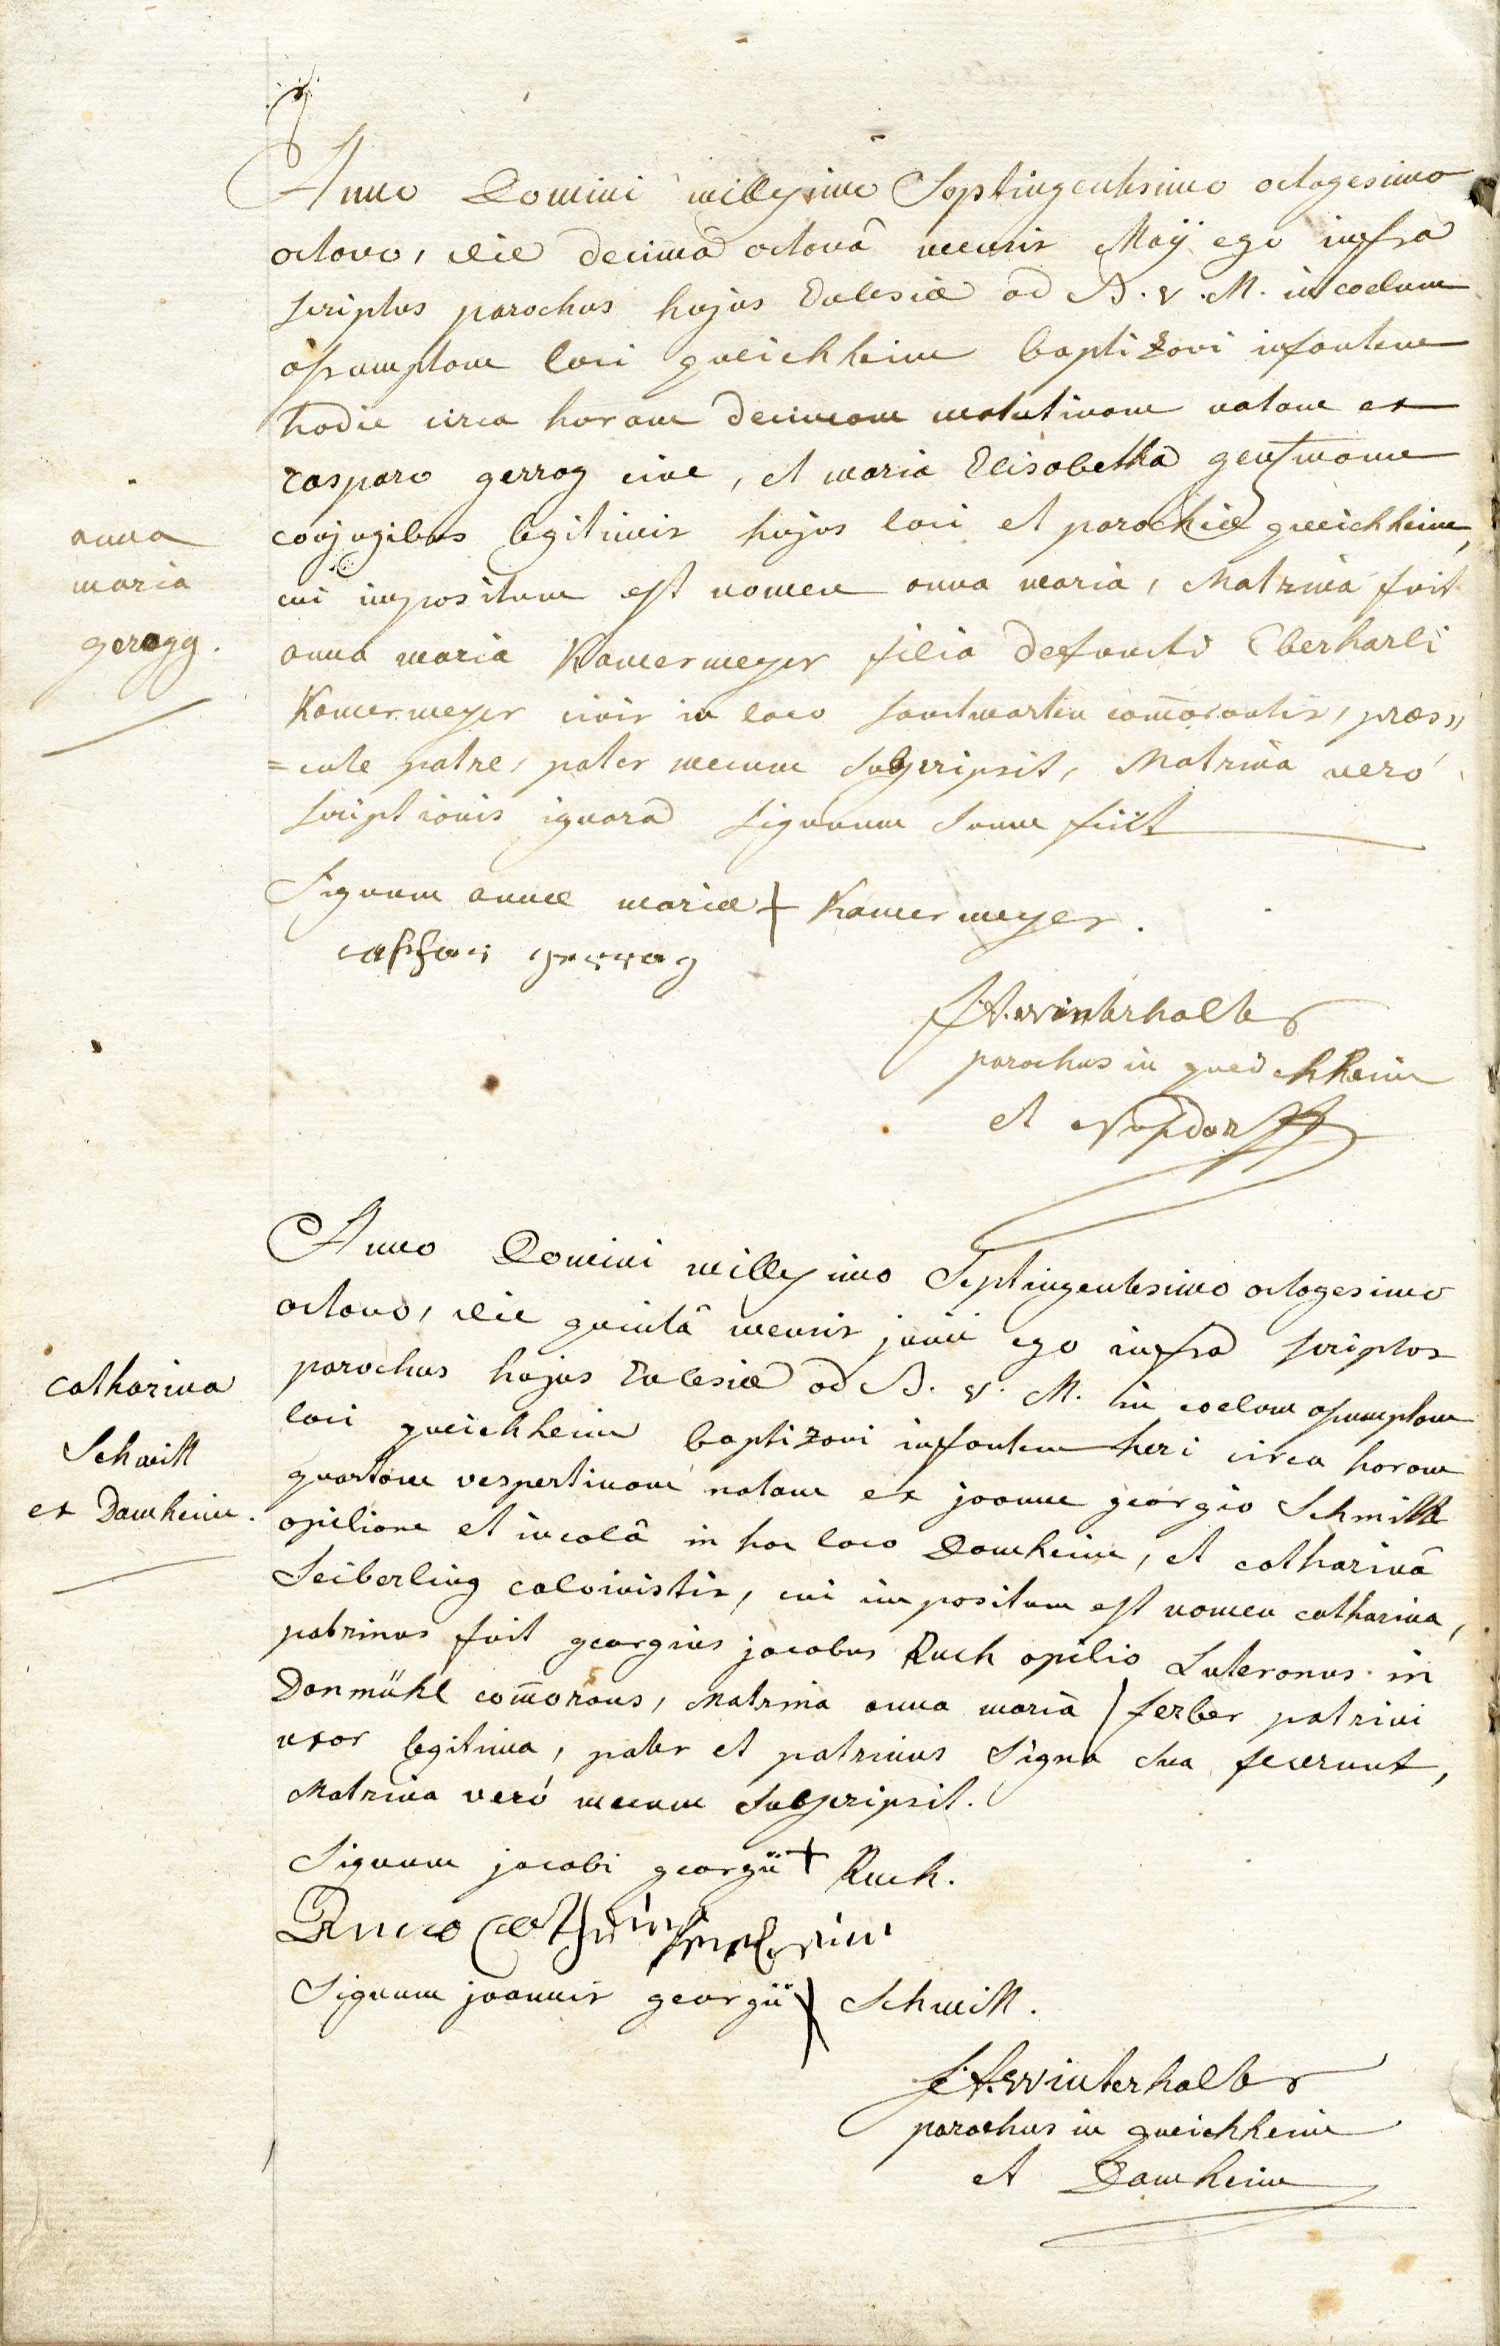 Anno Domini millesimo Septingentesimo octogesimo
octavo, die decimâ octavâ mensis Maij ego infra
scriptus parochus hujus Eclesiæ ad B. V. M. in coelum
assumptam loci queichheim baptizavi infantem
hodie circa horam decimam matutinam natam ex
casparo gerrog cive, et maria Elisabetha gensmann
conjugibus legitimis hujus loci et parochiæ queichheim,
cui impositum est nomen anna maria, Matrina fuit
anna maria Kamermeyer filia defuncti Eberharti
Kamermeyer civis in loco santmartin com̄orantis, præs„
=ente patre, pater mecum subscripsit, Matrina verò
scriptionis ignara signum suum fecit
anna
maria
gerogg.
Signum annæ mariæ + Kamermeyer.
casspar gerrog
F.A. Winterhalter
parochus in queichheim
et Nusdorff
Anno Domini millesimo Septingentesimo octogesimo
octavo, die quintâ mensis junii ego infra scriptus
parochus hujus Eclesiæ ad B. V. M. in coelum assumptam
loci queichheim baptizavi infantem heri circa horam
quartam vespertinam natam ex joanne georgio Schmitt
opilione et incolâ in hoc loco Damheim, et catharinâ
Seiberling calvinistis, cui impositum est nomen catharina,
patrinus fuit georgius jacobus Ruch opilio Luteranus in
Danmühl com̄orans, Matrina anna maria / ferber patrini
uxor legitima, pater et patrinus signa sua fecerunt,
Matrina verò mecum subscripsit.
catharina
Schmitt
ex Damheim.
Signum jacobi georgii + Ruch.
Signum joannis georgii + Schmitt.
F.A. Winterhalter
parochus in queichheim
et Damheim